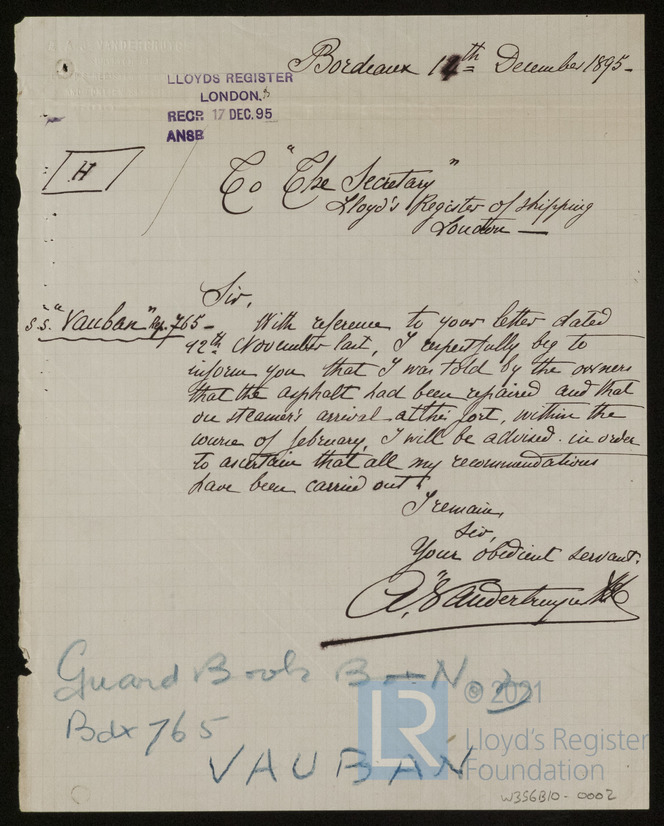 Bordeaux 14th December 1895-
LLOYDS REGISTER
LONDON.
RECR 17 DEC. 95
ANSR
H
To "The Secretary"
Lloyd's Register of shipping
London —
Sir,
S.S. "Vauban" Rep. 765 -
With reference to your letter dated
12th November last, I respectfully beg to
inform you that I was told by the owners
that the asphalt had been repaired and that
on steamer's arrival at this port, within the
course of february, I will be advised in order
to ascertain that all my recommendations
have been carried out.
I remain,
Sir,
Your obedient servant.
Guard Book Box No
Bdx 765
VAUBAN
LR
© 2021
Lloyd's Register
Foundation
W356B10-0002